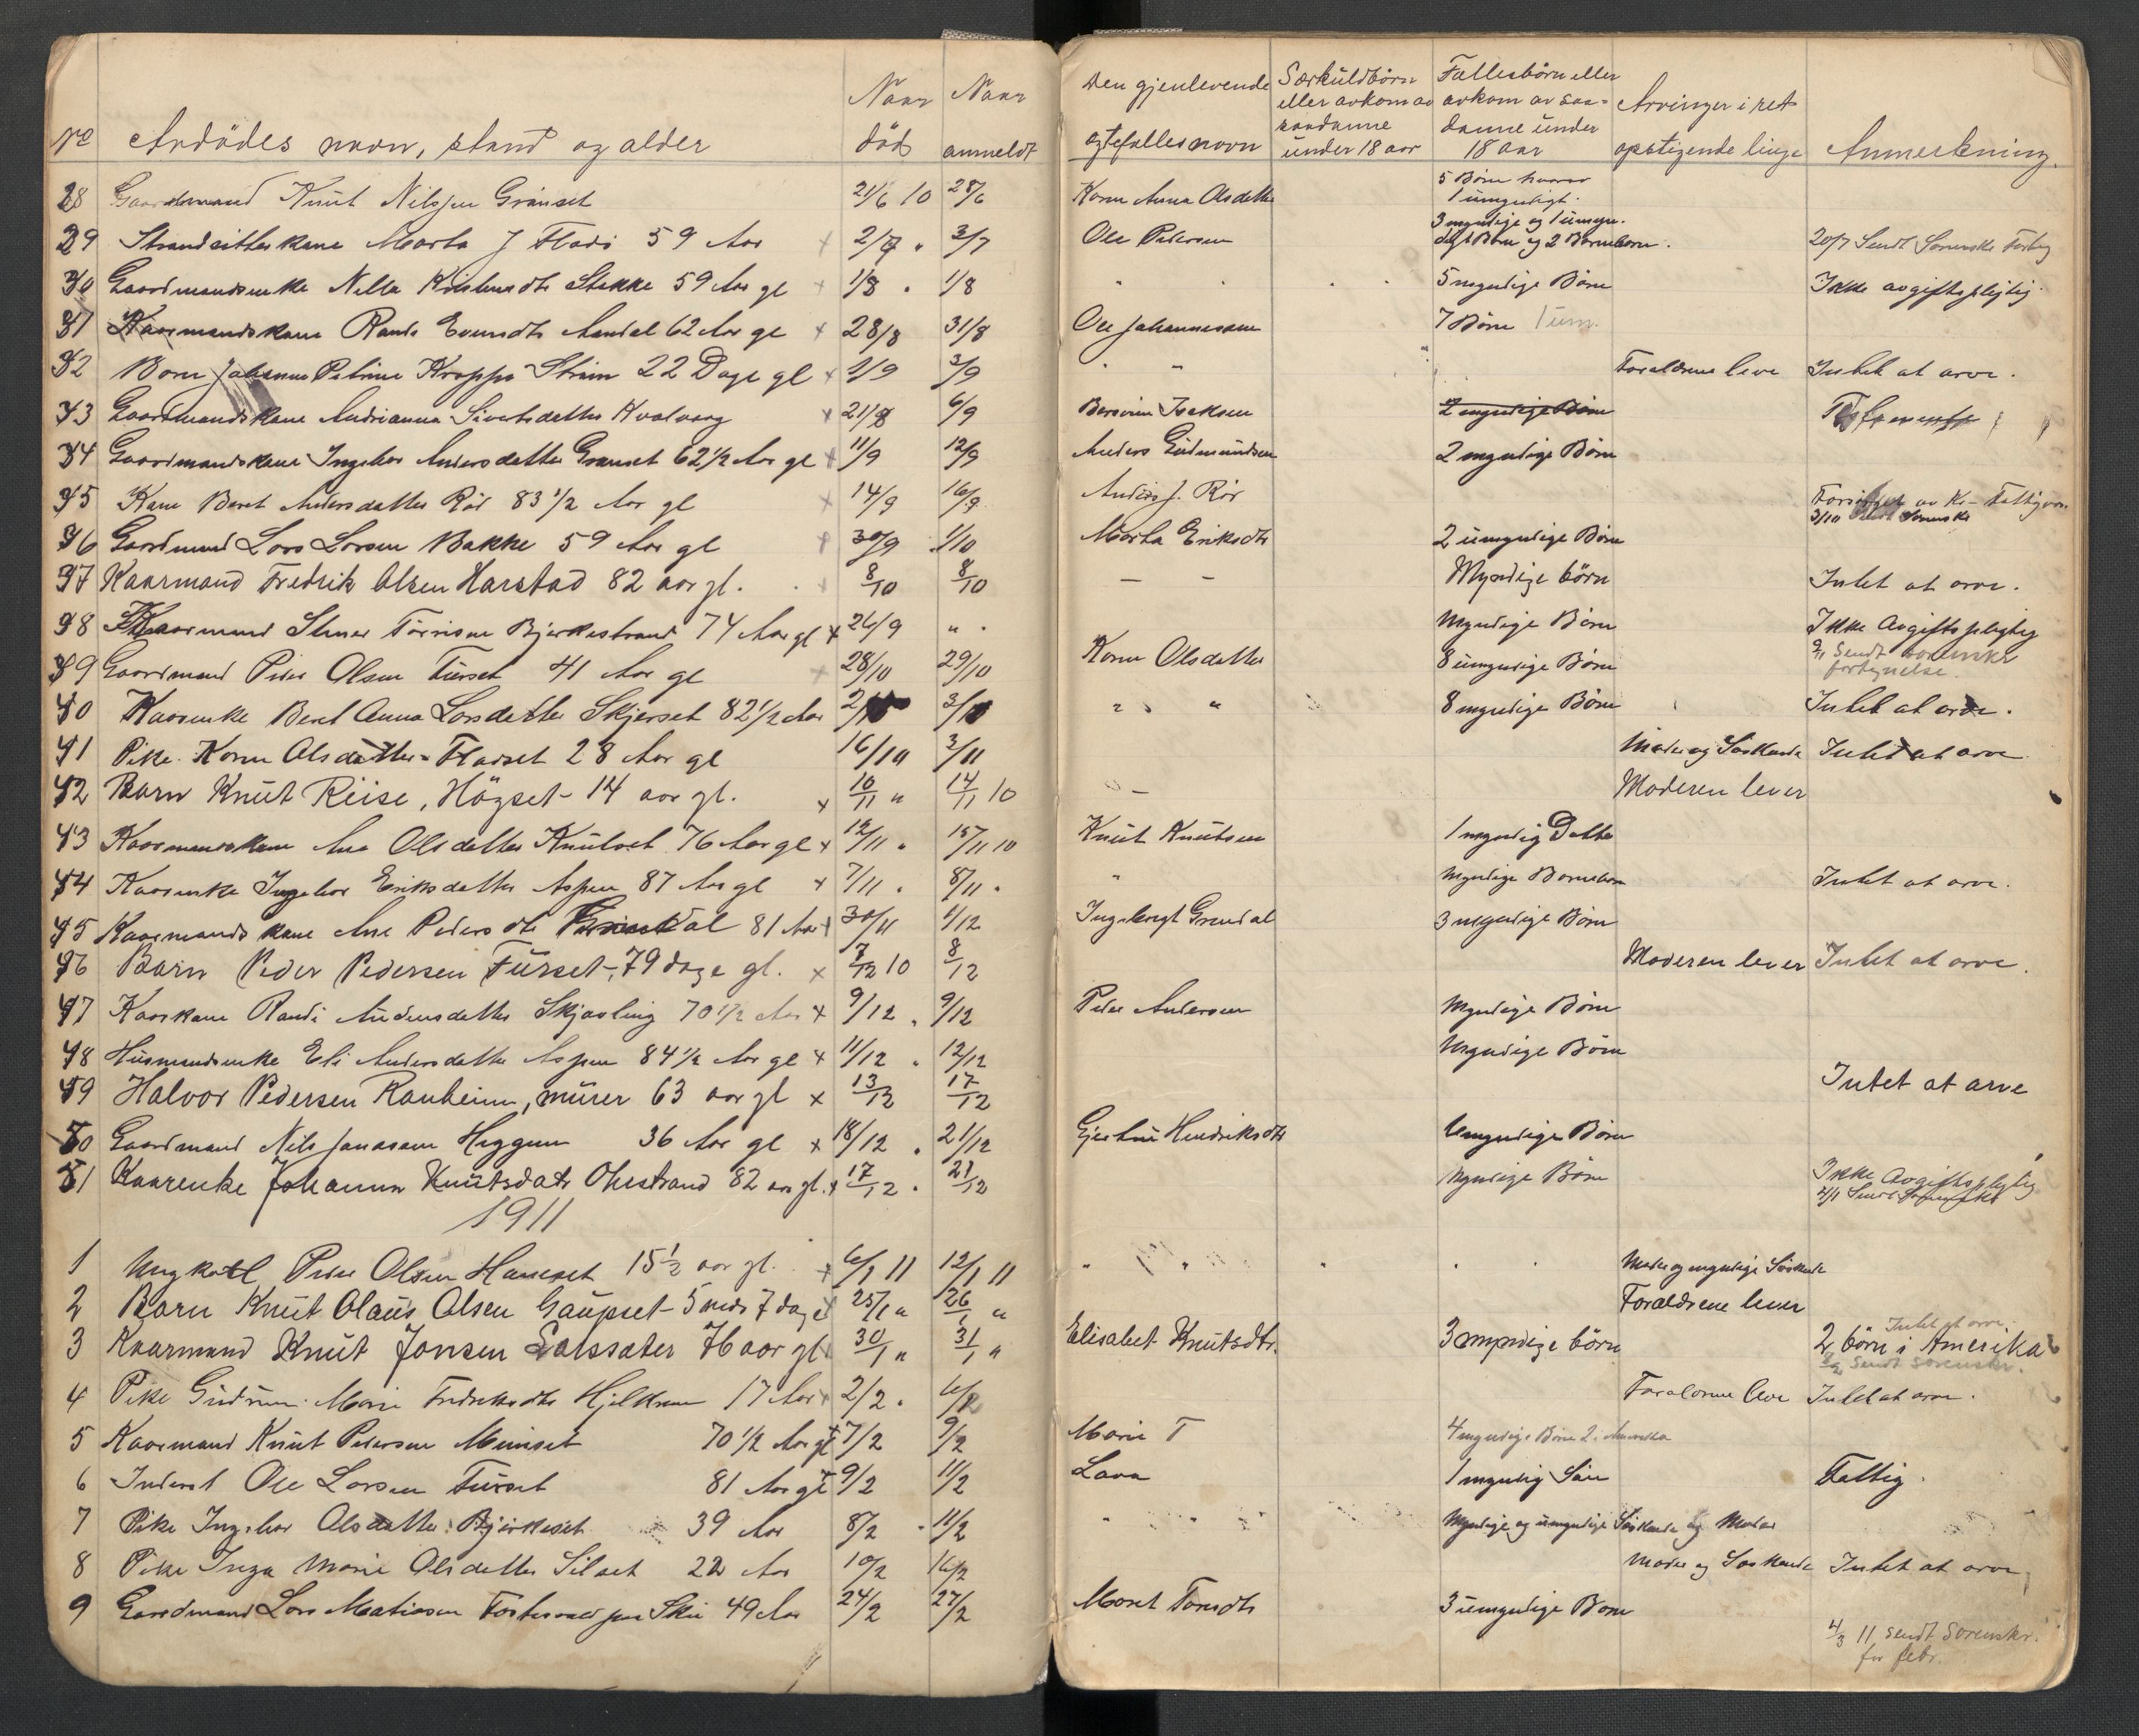 No Avdödes navn, stand og alder Naar död Naar anmeldt Den gjenlevende egtefælles navn Særkuldbörn eller avkom av saadanne under 18 aar Fællesbörn eller avkom av saadanne under 18 aar Arvinger i ret opstigende linje Anmerkning.
28 Gaardmand Knut Nilssen Granset 21/6 10 28/6 Karen Anna Olsdatter 5 Börn hvorav 1 umyndigt.
29 Strandsitterkone Marta J 59 Aar 2/7 " 3/7 Ole Pedersen 3 myndige og 1 umyn. digt Barn og 2 Barnebarn. 20/7 Sendt Sorenskr.
30 Gaardmandsenke Stokke 59 Aar gl 1/8 " 1/8 " 5 myndige Börn Ikke avgiftspligtig
31 Kaarmandskone 62 Aar gl 28/8 31/8 Ole Johannesen 7 Börn 1 um.
32 Barn Johanne Petrine Ström 22 Dage gl x 1/9 3/9 " " Forældrene leve Intet at arve.
33 Gaardmandskone Andrianna Sivertsdatter Kvalvaag x 21/8 6/9 Iveksen 2 myndige Börn
34 Gaardmandskone Ingebor Andersdatter Granset 62 1/2 Aar gl x 11/9 12/9 Anders Gudmundsen 2 myndige Börn
35 Kone Beret Andersdatter Rör 83 1/2 Aar gl x 14/9 16/9 Anders J. Rör av Kr. Fattigv.
36 Gaardmand Lars Larsen Bakke 59 Aar gl x 30/9 1/10 Marta Eriksdtr 2 umyndige Börn 3/10 Sendt Sorenskr
37 Kaarmand Fredrik Olsen Harstad 82 aar gl. x 8/10 8/10 – – Myndige börn Intet at arve.
38 Kaarmand Bjerkestrand 74 Aar gl x 26/9 " " Myndige Börn Ikke Avgiftspligtig
39 Gaardmand Peder Olsen Furset 41 Aar gl x 28/10 29/10 Karen Olsdatter 8 umyndige Börn 2/11 Sendt sorenskr fortegnelse.
40 Kaarenke Beret Anna Larsdatter Skjerset 82 1/2 Aar 2/ 3/ " " 8 myndige Börn Intet at arve.
41 Pike Karen Olsdatter 28 Aar gl 16/10 3/11 Moder og Söskende Intet at arve
42 Barn Knut Riise, Högset – 14 aar gl. x 10/11 " 14/11 10 – Moderen lever
43 Kaarmandskone Ane Olsdatter Knutset 76 Aar gl x 12/11 " 15/11 10 Knut Knutsen 1 myndig Datter
44 Kaarenke Ingebor Eriksdatter Aspen 87 Aar gl x 7/11 " 8/11 " " Myndige Barnebarn Intet at arve.
45 Kaarmandskone Ane Pedersdtr 81 Aar x 30/11 1/12 Ingebregt Grendal 3 myndige Börn
46 Barn Peder Pedersen Furset, 79 dage gl. x 7/12 10 8/12 Moderen lever Intet at arve.
47 Kaarkone Randi Andersdatter Skjævling 70 1/2 Aar x 9/12 " 9/12 Peder Andersen Myndige Börn
48 Husmandsenke Eli Andersdatter Aspen 84 1/2 Aar gl x 11/12 " 12/12 Myndige Börn
49 Halvor Pedersen Ranheim, murer 63 aar gl x 13/12 17/12 Intet at arve
50 Gaardmand Nils Jonasen Heggem 36 Aar gl x 18/12 " 21/12 Gjertrue Hendriksdtr Umyndige Börn
51 Kaarenke Johanna Knutsdatr 82 aar gl. x 17/12 " 21/12 Myndige Börn Ikke Avgiftspligtig 2/1 Sendt Sorenskr
1911
1 Ungkarl Peder Olsen Haneset 15 1/2 aar gl. x 6/1 11 12/1 11 " " " Moder og myndige Söskende
2 Barn Knut Olaus Olsen Gaupset 5 mdr 7 dage x 25/1 " 26/1 " Forældrene lever
3 Kaarmand Knut Jonsen 76 aar gl x 30/1 " 31/1 " Elisabet Knutsdtr. 3 myndige börn Intet at arve. 2 börn i Amerika 2/2 Sendt Sorenskr.
4 Pike Gudrun Marie Fredriksdtr Hjelkrem 17 Aar x 2/2 " 6/2 Forældrene leve Intet at arve.
5 Kaarmand Knut Pedersen 70 1/2 Aar gl 7/2 9/2 Marie T 4 myndige Börn 2 i Amerika
6 Inderst Ole Larsen Furset 81 Aar gl 9/2 11/2 Lava 1 myndig Sön Fattig.
7 Pike Ingebor Olsdatter Bjerkeset 39 Aar 8/2 " 11/2 " Myndige og umyndige Söskende og Moder
8 Pike Inga Marie Olsdatter Silset 22 Aar 10/2 16/2 Moder og Söskende Intet at arve
9 Gaardmand Lars Matiasen 49 Aar 24/2 27/2 Maret 3 umyndige Barn
4/3 11 sendt Sorenskr. for febr.